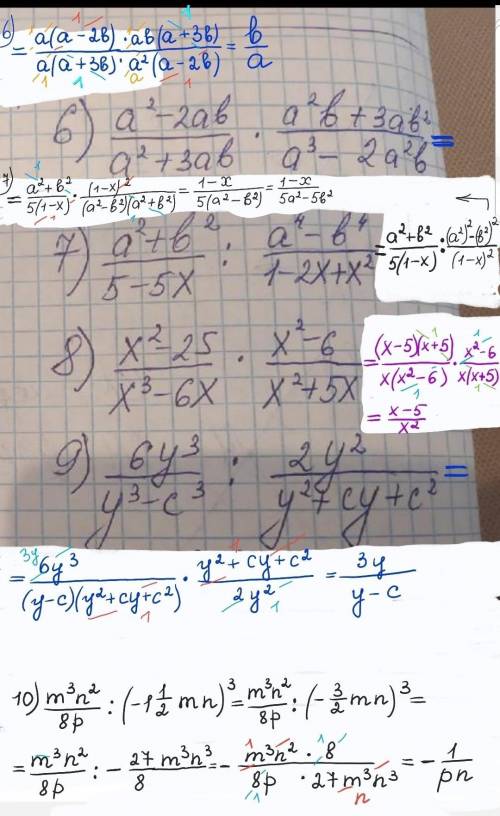 6) = a(a-2b)·ab(a+3b) / a(a+3b)·a²(a-2b) = b/a
6) a²-2ab / a²+3ab · a²b+3ab² / a³-2a²b =
7) = a²+b² / 5(1-x) · (1-x)² / (a²-b²)(a²+b²) = 1-x / 5(a²-b²) = 1-x / 5a²-5b²
7) a²+b² / 5-5x : a⁴-b⁴ / 1-2x+x² = a²+b² / 5(1-x) : (a²)²-(b²)² / (1-x)²
8) x²-25 / x³-6x · x²-6 / x²+5x = (x-5)(x+5) / x(x²-6) · x²-6 / x(x+5)
= x-5 / x²
9) 6y³ / y³-c³ : 2y² / y²+cy+c² =
= 6y³ / (y-c)(y²+cy+c²) · y²+cy+c² / 2y² = 3y / y-c
10) m³n² / 8p : (-1 1/2 mn)³ = m³n² / 8p : (-3/2 mn)³ =
= m³n² / 8p : - 27m³n³ / 8 = - m³n²·8 / 8p·27m³n³ = - 1 / pn